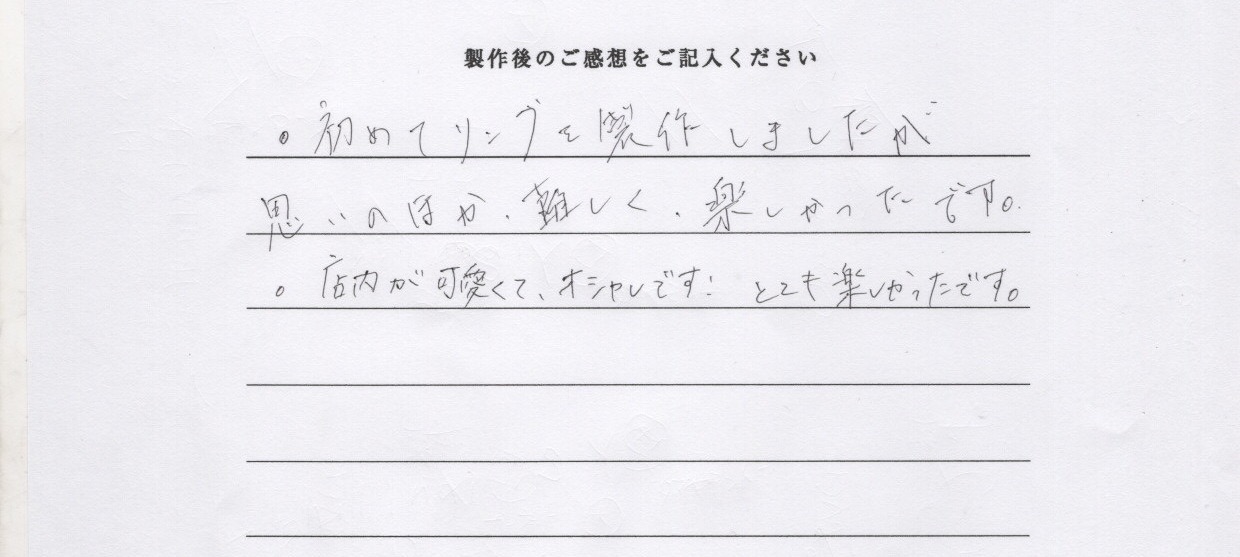 製作後のご感想をご記入ください
。初めてリングを製作しましたが
思いのほか、難しく、楽しかったです。
。店内が可愛くて、オシャレです! とても楽しかったです。